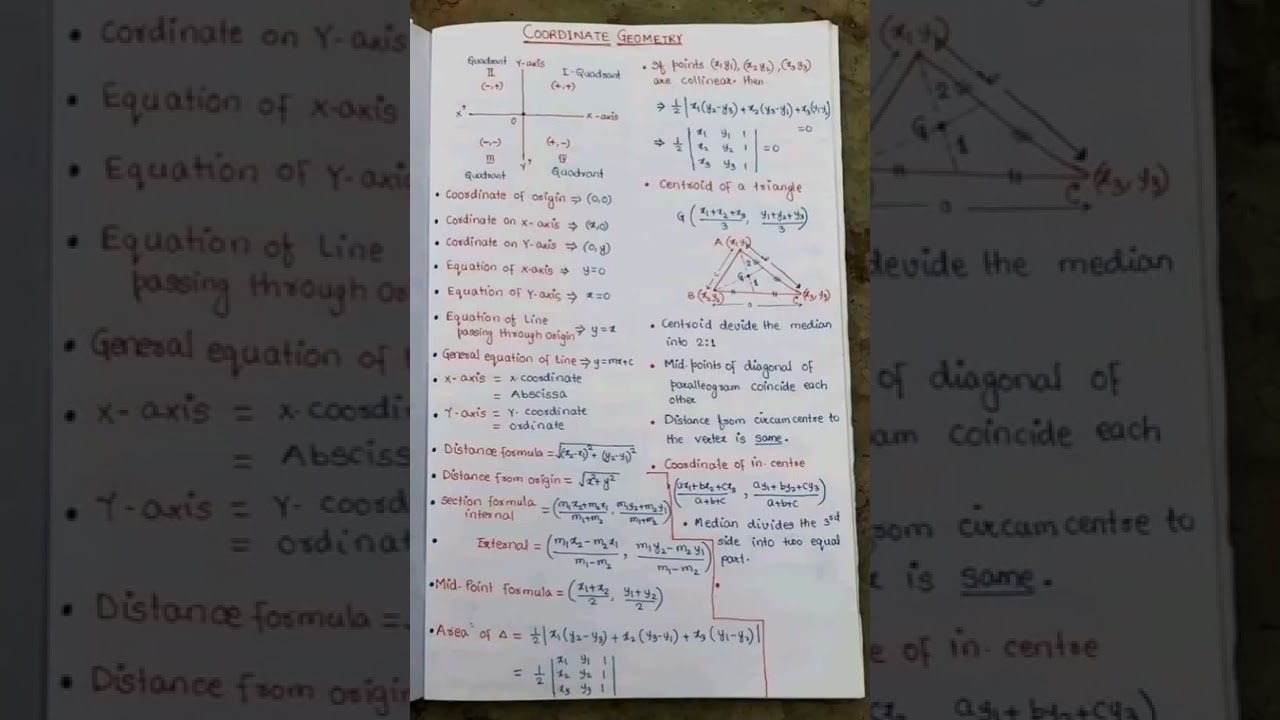 COORDINATE GEOMETRY
Quadrant
II
(-,+)
Y-axis
I-Quadrant
(+,+)
X'
O
X-axis
(-,-)
III
Quadrant
Y'
(+,-)
IV
Quadrant
• Coordinate of origin ⇒ (0,0)
• Cordinate on X-axis ⇒ (x,0)
• Cordinate on Y-axis ⇒ (0,y)
• Equation of X-axis ⇒ y=0
• Equation of Y-axis ⇒ x=0
• Equation of Line
passing through origin ⇒ y=x
• General equation of Line ⇒ y=mx+c
• X-axis = x-coordinate
= Abscissa
• Y-axis = Y-coordinate
= ordinate
• Distance formula = √(x₂-x₁)²+(y₂-y₁)²
• Distance from origin = √x²+y²
• section formula
internal = (m₁x₂+m₂x₁/m₁+m₂, m₁y₂+m₂y₁/m₁+m₂)
• External = (m₁x₂-m₂x₁/m₁-m₂, m₁y₂-m₂y₁/m₁-m₂)
• Mid-Point formula = (x₁+x₂/2, y₁+y₂/2)
• Area of Δ = 1/2|x₁(y₂-y₃)+x₂(y₃-y₁)+x₃(y₁-y₂)|
= 1/2 | x₁ y₁ 1
x₂ y₂ 1
x₃ y₃ 1 |
• If points (x₁y₁), (x₂y₂), (x₃y₃)
are collinear then
⇒ 1/2|x₁(y₂-y₃)+x₂(y₃-y₁)+x₃(y₁-y₂)
=0
⇒ 1/2 | x₁ y₁ 1
x₂ y₂ 1
x₃ y₃ 1 | =0
• Centroid of a triangle
G (x₁+x₂+x₃/3, y₁+y₂+y₃/3)
A (x₁y₁)
2
G
1
B (x₂y₂)
C (x₃,y₃)
a
• Centroid devide the median
into 2:1
• Mid-points of diagonal of
paralleogram coincide each
other
• Distance from circumcentre to
the vertex is same.
• Coordinate of in-centre
(ax₁+bx₂+cx₃/a+b+c, ay₁+by₂+cy₃/a+b+c)
• Median divides the 3rd
side into two equal
part.